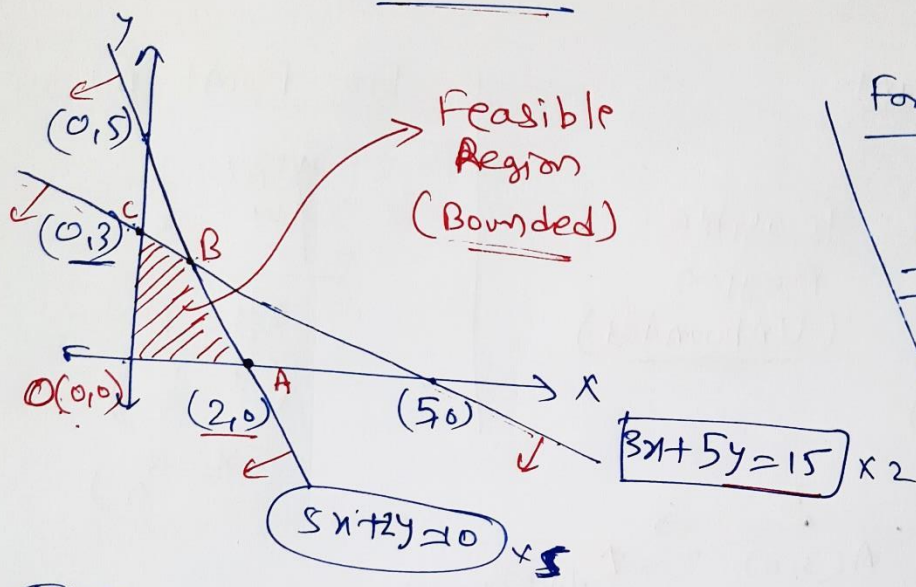 y
(0,5)
Feasible
Region
(Bounded)
C
(0,3)
B
O(0,0)
(2,0)
A
(5,0)
X
3x+5y=15 × 2
5x+2y=10 × 5